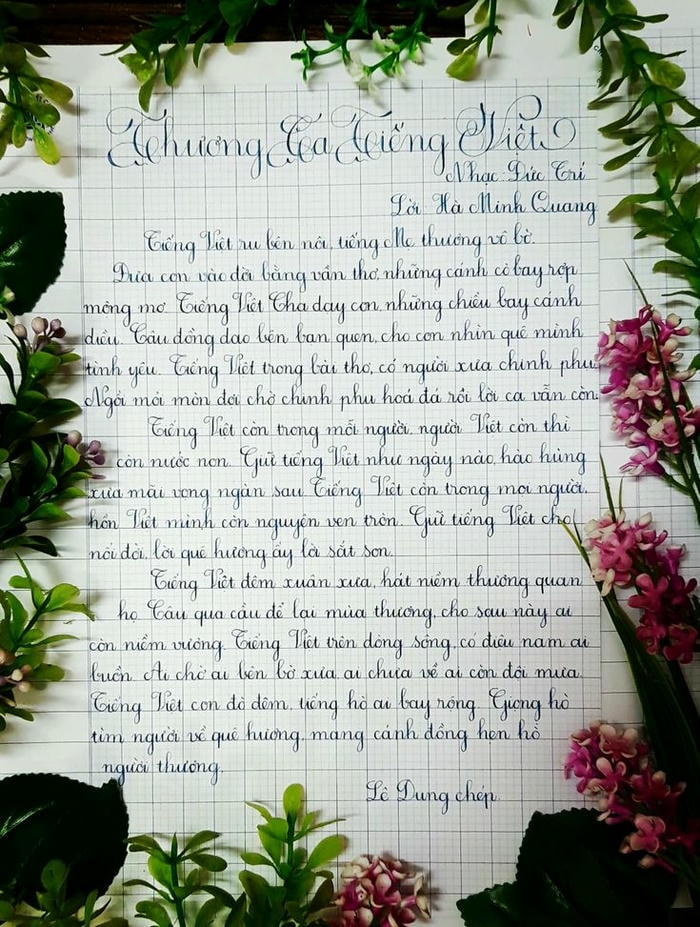 Thương Ca Tiếng Việt
Nhạc: Đức Trí
Lời: Hà Minh Quang
Tiếng Việt ru bên nôi, tiếng Mẹ thương vô bờ.
Đưa con vào đời bằng vần thơ, những cánh cò bay rợp
mộng mơ. Tiếng Việt Cha dạy con, những chiều bay cánh
diều. Câu đồng dao bên bạn quen, cho con nhìn quê mình
tình yêu. Tiếng Việt trong bài thơ, có người xưa chinh phu.
Ngồi mỏi mòn đợi chờ chinh phu hoá đá rồi lời ca vẫn còn.
Tiếng Việt còn trong mỗi người, người Việt còn thì
còn nước non. Giữ tiếng Việt như ngày nào, hào hùng
xưa mãi vọng ngàn sau. Tiếng Việt còn trong mọi người,
hồn Việt mình còn nguyện vẹn tròn. Giữ tiếng Việt cho
nối đời, lời quê hương ấy lời sắt son.
Tiếng Việt đêm xuân xưa, hát niềm thương quan
họ. Câu qua cầu để lại mùa thương, cho sau này ai
còn niềm vương. Tiếng Việt trên dòng sông, có điệu nam ai
buồn. Ai chờ ai bên bờ xưa ai chưa về ai còn đội mưa.
Tiếng Việt con đò đêm, tiếng hò ai bay rộng. Giọng hò
tìm người về quê hương, mang cánh đồng hẹn hò
người thương.
Lê Dung chép